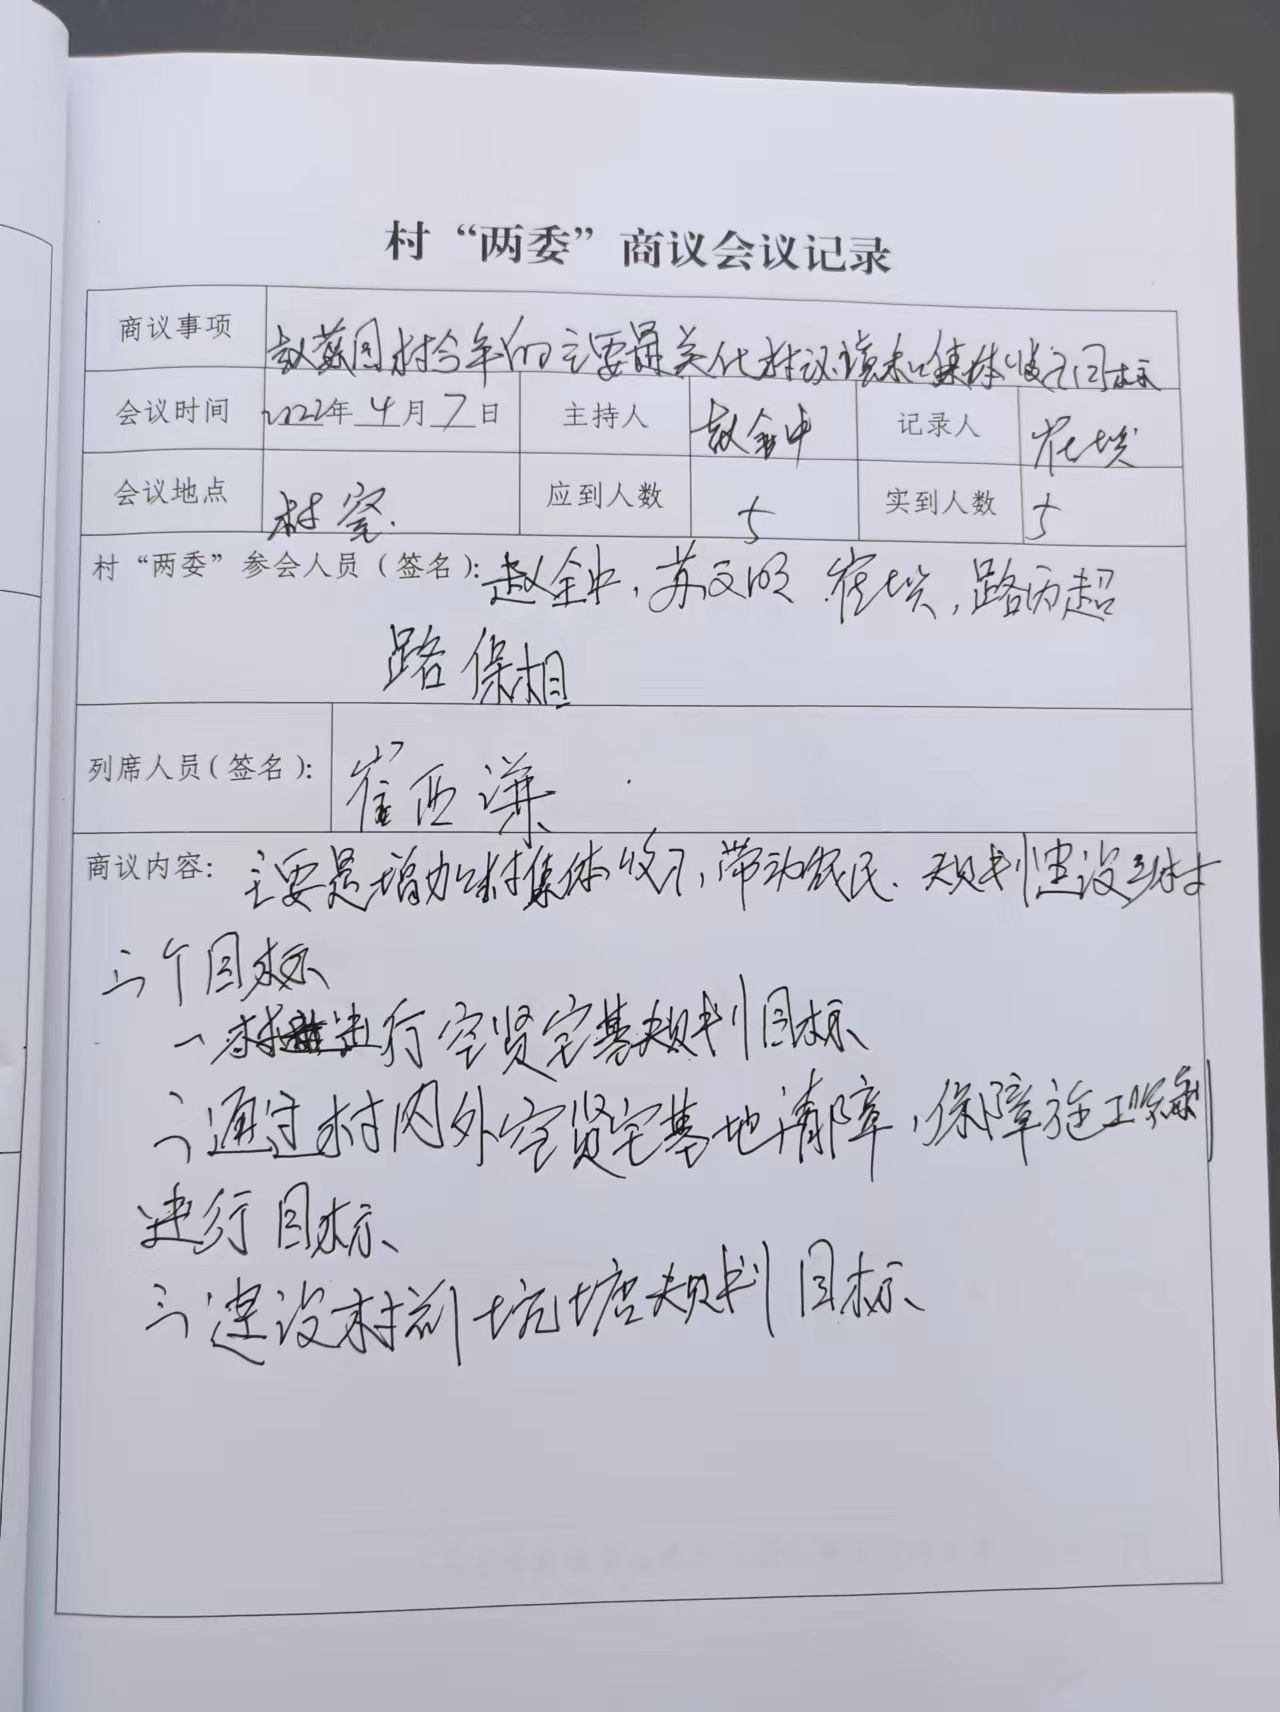 村“两委”商议会议记录
商议事项 赵苏园村今年的主要是美化村设 和集体收入目标
会议时间 2022年 4月 7日 主持人 赵金中 记录人 崔
会议地点 村室. 应到人数 5 实到人数 5
村“两委”参会人员(签名): 赵金中, 苏文明 崔 , 路 超
路保相
列席人员(签名): 崔西谦
商议内容: 主要是增加村集体收入, 带动农民、规划建设 村
三个目标
一 村 进行空贤宅基规划目标
二、通过村内外空贤宅基地清障, 保障施工顺利
进行目标
三、建设村前坑塘规划目标